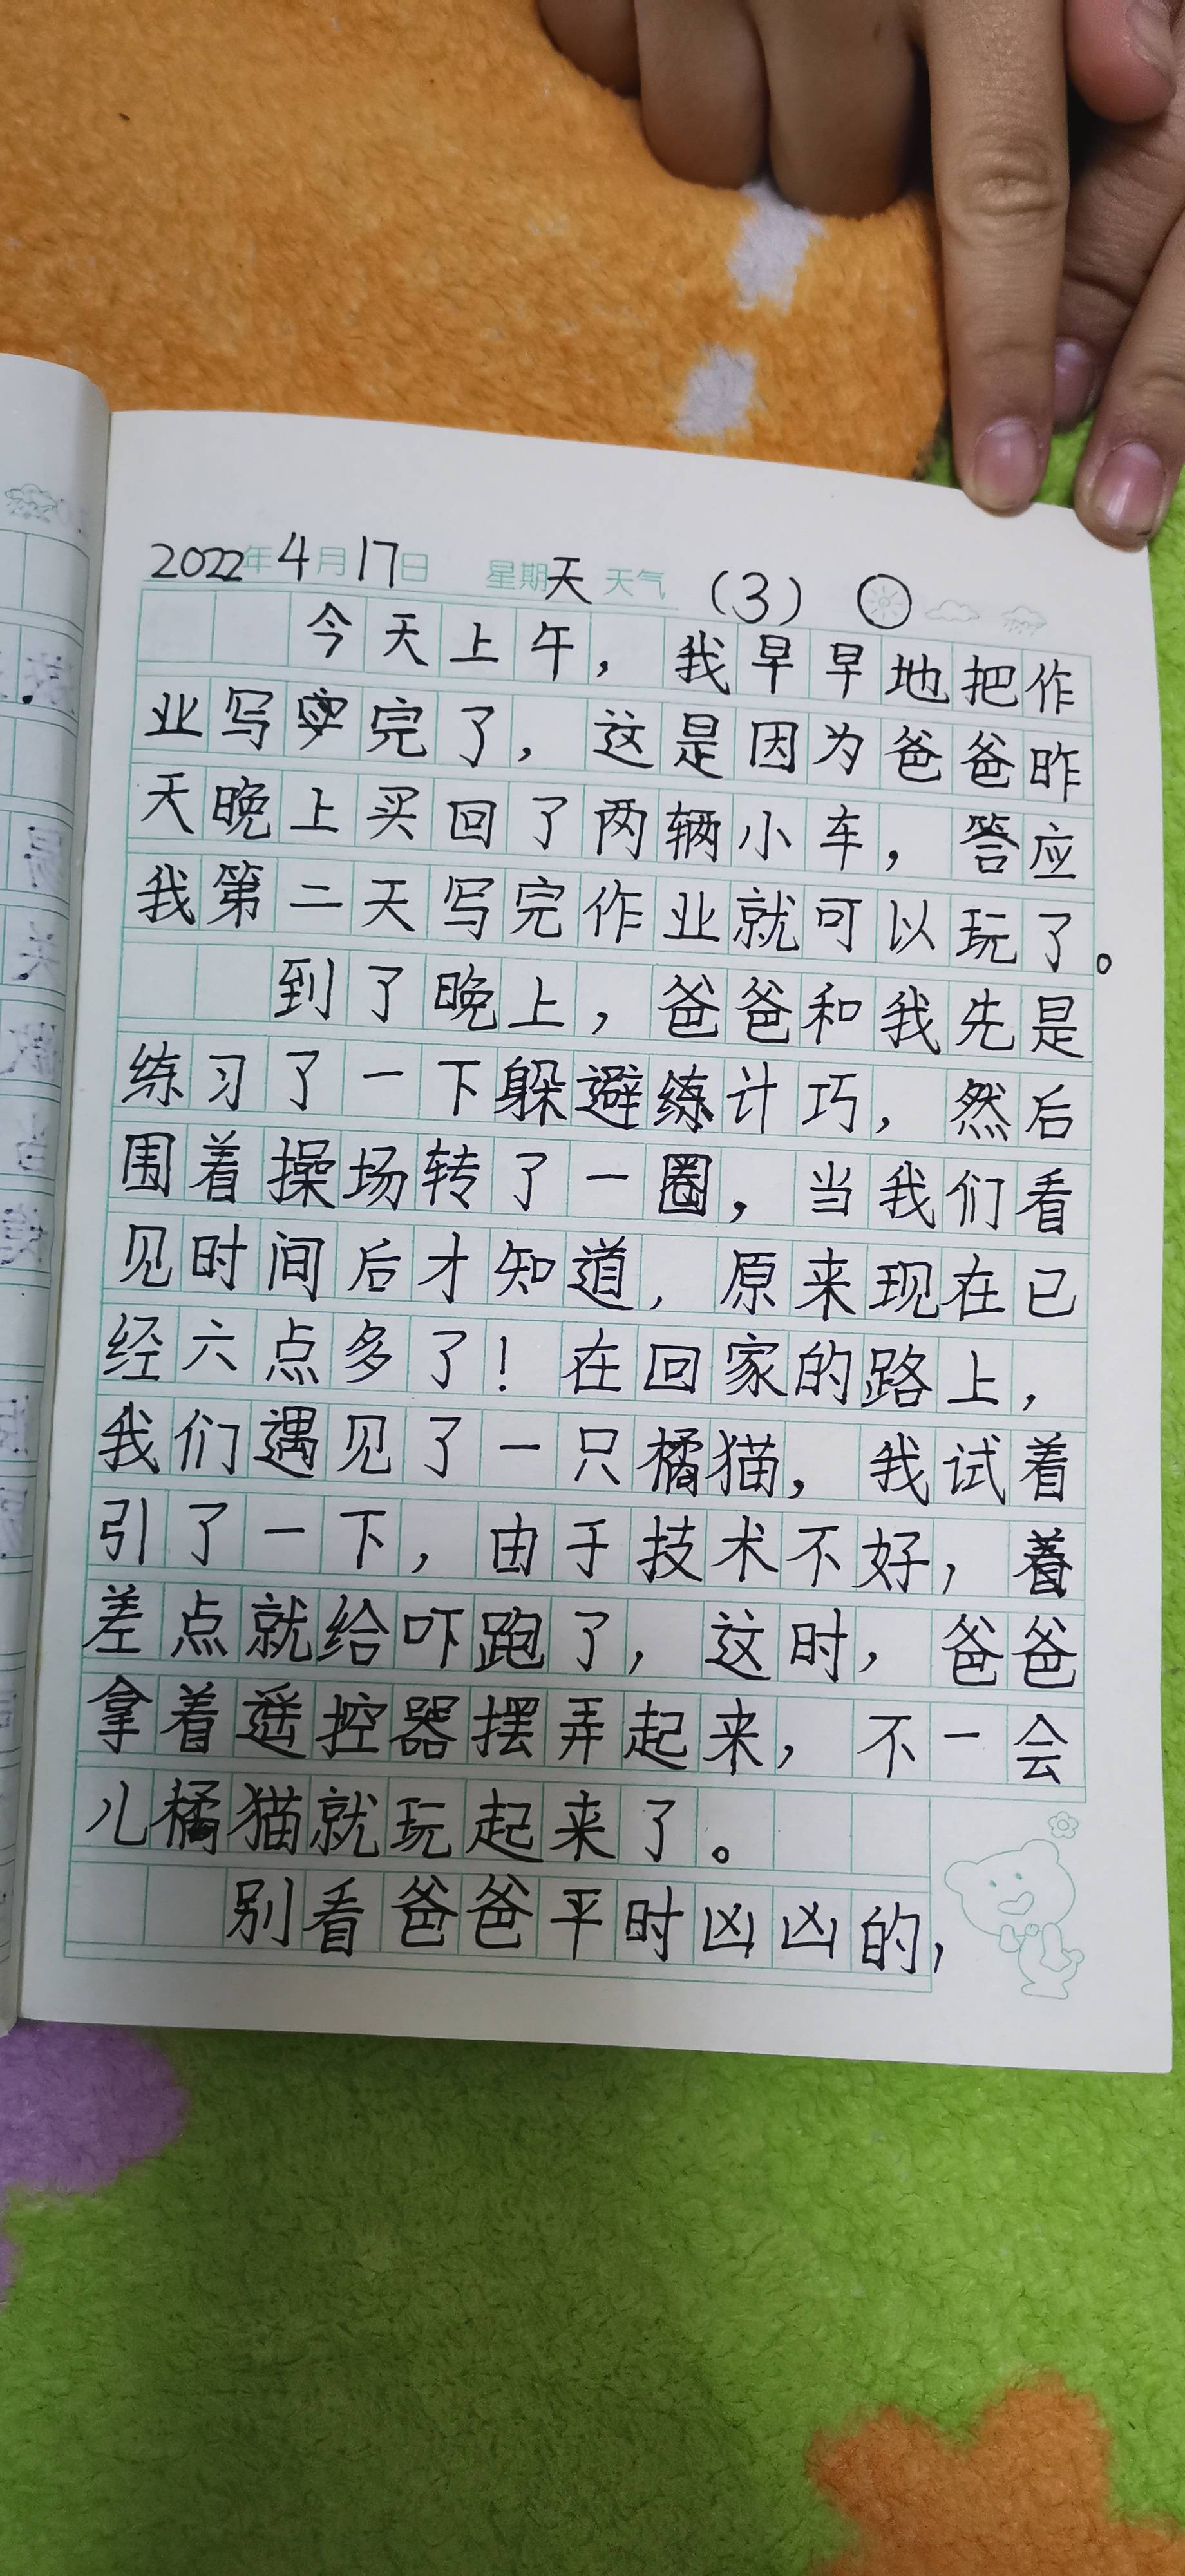 2022年4月17日 星期天 天气 (3)
今天上午，我早早地把作
业写完了，这是因为爸爸昨
天晚上买回了两辆小车，答应
我第二天写完作业就可以玩了。
到了晚上，爸爸和我先是
练习了一下躲避练计巧，然后
围着操场转了一圈，当我们看
见时间后才知道，原来现在已
经六点多了！在回家的路上，
我们遇见了一只橘猫，我试着
引了一下，由于技术不好，着
差点就给吓跑了，这时，爸爸
拿着遥控器摆弄起来，不一会
儿橘猫就玩起来了。
别看爸爸平时凶凶的，